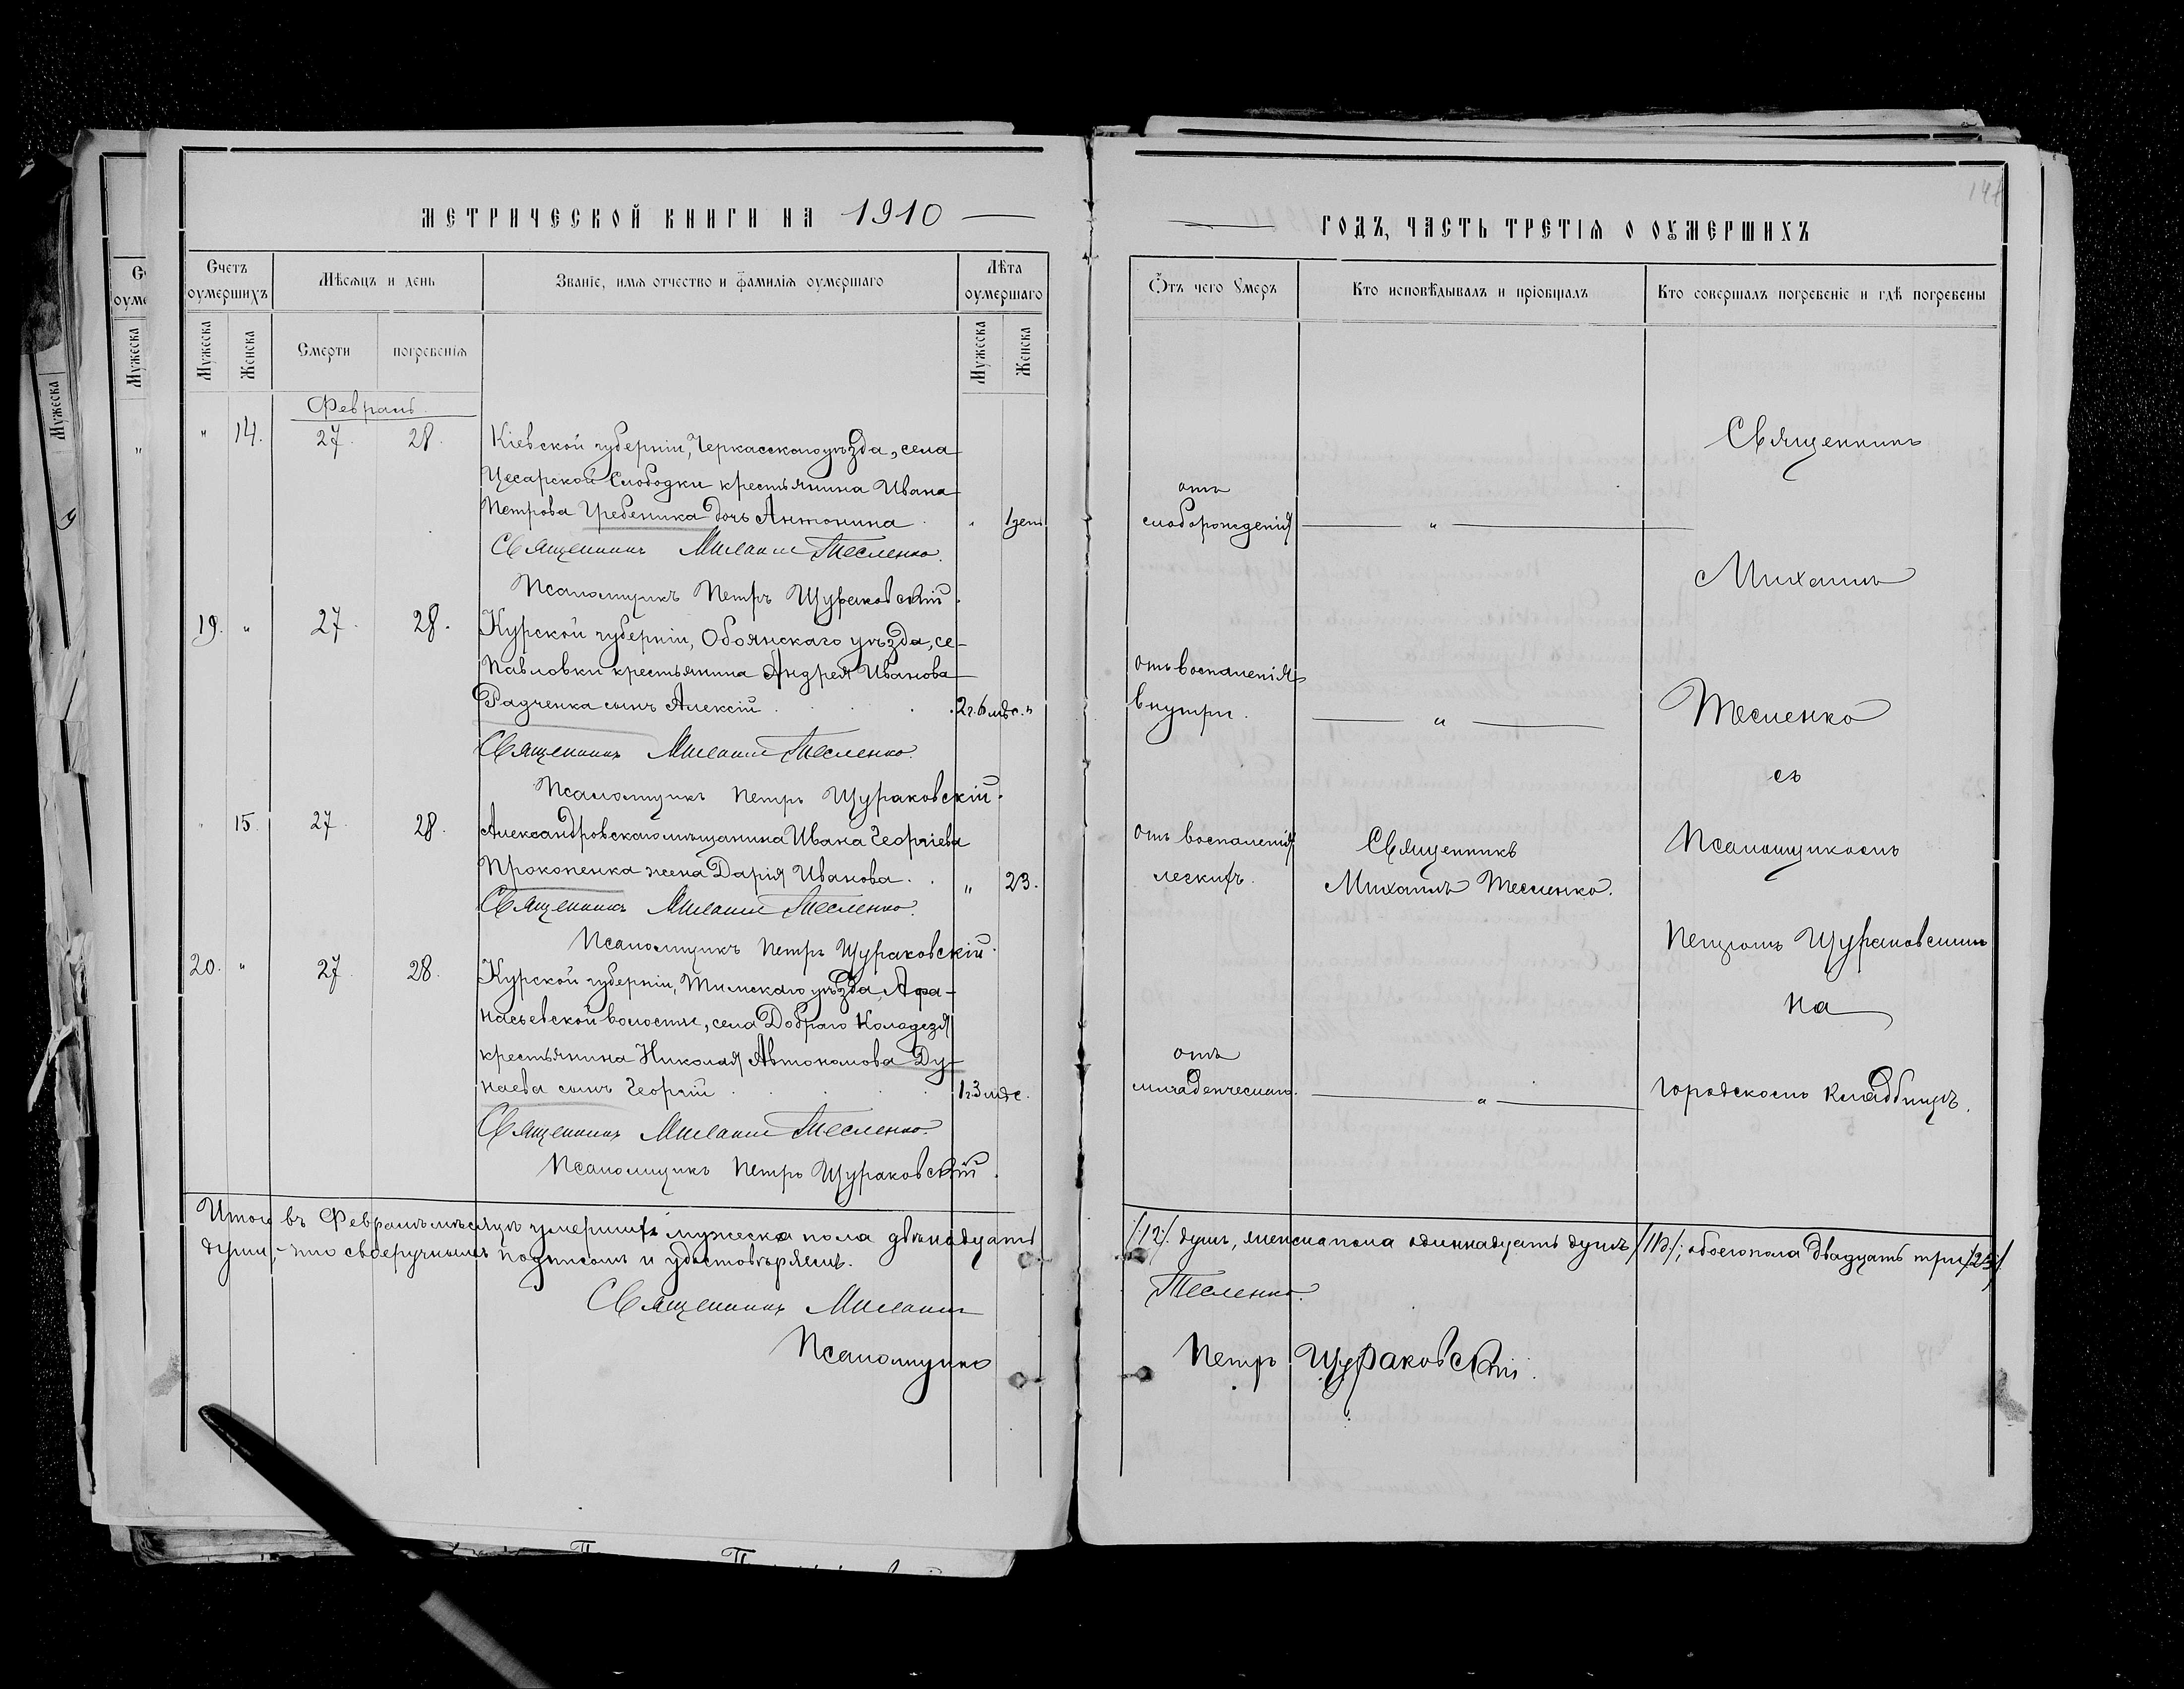 МЕТРИЧЕСКОЙ КНИГИ НА 1910
Счетъ оумершихъ
Мѣсяцъ и день
Званіе, имя отчество и фамилія оумершаго
Лѣта оумершаго
Мужеска
Женска
Смерти
погребенія
Мужеска
Женска
Февраль
" 14. 27. 28. Кіевской губерніи, Черкасскаго уѣзда, села
Цесарской Слободки крестьянина Ивана
Петрова Гребеника дочь Антонина " 1 день
Священникъ Михаилъ Тесленко.
Псаломщикъ Петръ Щураковскій.
19. " 27. 28. Курской губерніи, Обоянскаго уѣзда, се-
Павловки крестьянина Андрея Иванова
Радченка сынъ Алексій 2 г. 6 мѣс. "
Священникъ Михаилъ Тесленко.
Псаломщикъ Петръ Щураковскій.
" 15. 27. 28. Александровскаго мѣщанина Ивана Георгіева
Прокопенка жена Дарія Иванова. " 23.
Священникъ Михаилъ Тесленко.
Псаломщикъ Петръ Щураковскій.
20. " 27. 28. Курской губерніи, Тимскаго уѣзда, Афа-
насьевской волости, села Добраго Колодезя
крестьянина Николая Автономова Ду-
наева сынъ Георгій 1 г. 3 мѣс.
Священникъ Михаилъ Тесленко.
Псаломщикъ Петръ Щураковскій.
Итого въ Февралѣ мѣсяцѣ умершихъ мужеска пола двѣнадцать
души, что своеручнымъ подписомъ и удостовѣряемъ.
Священникъ Михаилъ
Псаломщикъ
ГОДЪ, ЧАСТЬ ТРЕТІЯ О ОУМЕРШИХЪ
Отъ чего Умеръ
Кто исповѣдывалъ и пріобщалъ
Кто совершалъ погребеніе и гдѣ погребены
отъ
слаборожденія "
отъ воспаленія
внутри. "
отъ воспаленія
легкихъ.
Священникъ
Михаилъ Тесленко.
отъ
младенческаго. "
Священникъ
Михаилъ
Тесленко
съ
Псаломщикомъ
Петромъ Щураковскимъ
на
городскомъ кладбищѣ.
/12/ душъ, женска пола одиннадцать душъ /11/; обоего пола двадцать три /23/
Тесленко.
Петръ Щураковскій.